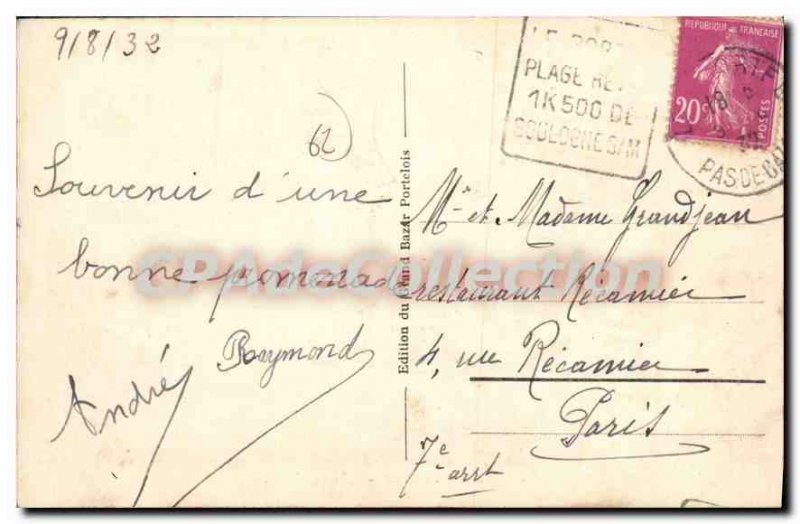 9/8/32
62
Souvenir d'une
bonne promenade
Raymond
André
Edition du Grand Bazar Portelois
LE PORTEL
PLAGE
1K500 DE
BOULOGNE S/M
REPUBLIQUE FRANÇAISE
20c
POSTES
PAS-DE-CALAIS
Mr et Madame Grandjean
restaurant Récamier
4, rue Récamier
Paris
7e arrt
CPAdeCollection